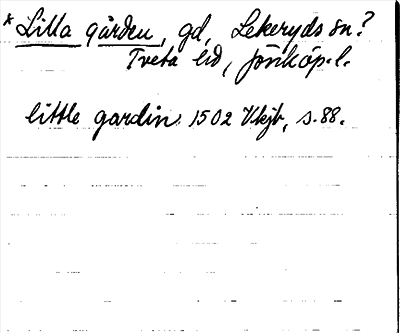 * Lilla gården, gd, Lekeryds sn.?
Tveta hd, Jönköp. l.
little gardin 1502 Vkjb, s. 88.